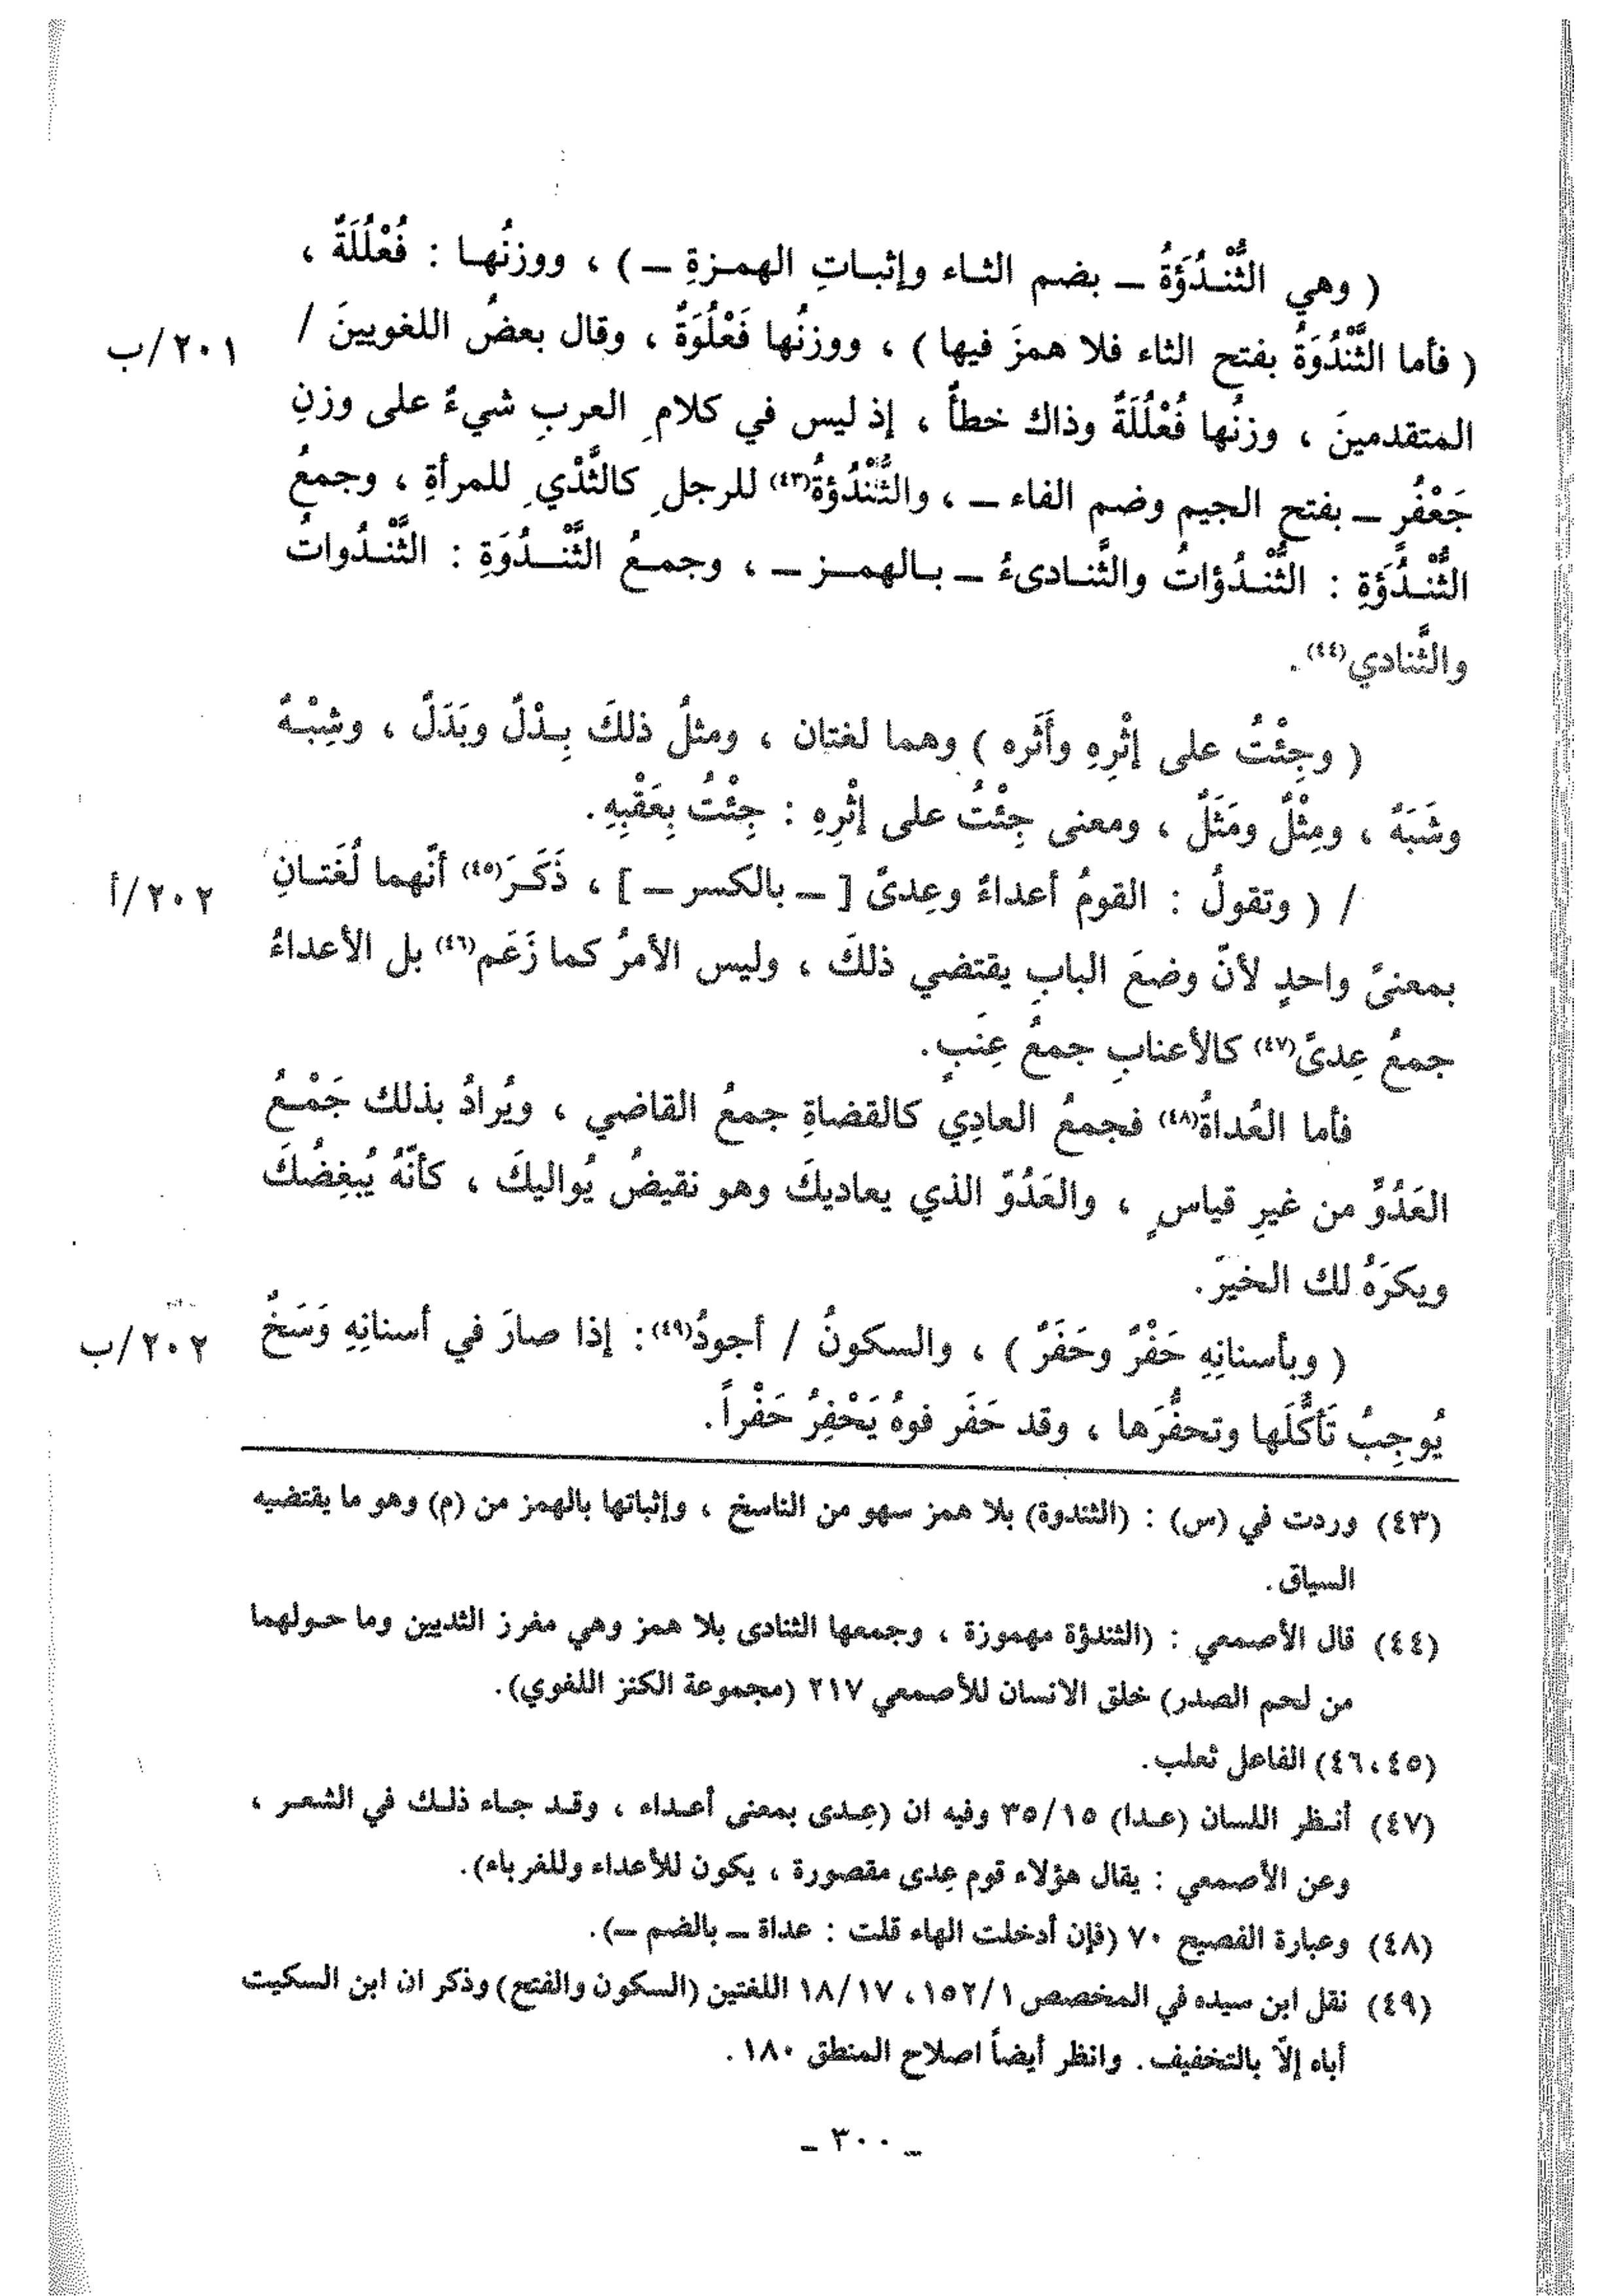 ( وهي الثُّنْدُؤَةُ ـ بضم الثاء وإثباتِ الهمزةِ ـ ) ، ووزنُها : فُعْلُلَةٌ ،
( فأما الثَّنْدُوَةُ بفتح الثاء فلا همزَ فيها ) ، ووزنُها فَعْلُوَةٌ ، وقال بعضُ اللغويينَ /
٢٠١/ب
المتقدمينَ ، وزنُها فُعْلُلَةٌ وذاك خطأ ، إذ ليس في كلامِ العربِ شيءٌ على وزنِ
جَعْفُرٍ ـ بفتح الجيم وضم الفاء ـ ، والثُّنْدُؤةُ(٤٣) للرجلِ كالثَّدْيِ للمرأةِ ، وجمعُ
الثُّنْدُؤَةِ : الثُّنْدُؤاتُ والثَّنادىءُ ـ بالهمز ـ ، وجمعُ الثَّنْدُوَةِ : الثَّنْدُواتُ
والثَّنادي(٤٤).
( وجِئْتُ على إثْرِهِ وأَثَره ) وهما لغتان ، ومثلُ ذلكَ بِدْلٌ وبَدَلٌ ، وشِبْهٌ
وشَبَهٌ ، ومِثْلٌ ومَثَلٌ ، ومعنى جِئْتُ على إثْرِهِ : جِئْتُ بِعَقْبِهِ.
/ ( وتقولُ : القومُ أعداءٌ وعِدىً [ ـ بالكسر ـ ] ، ذَكَرَ(٤٥) أنّهما لُغَتانِ
٢٠٢/أ
بمعنىً واحدٍ لأنّ وضعَ البابِ يقتضي ذلكَ ، وليس الأمرُ كما زَعَم(٤٦) بل الأعداءُ
جمعُ عِدىً(٤٧) كالأعنابِ جمعُ عِنَبٍ.
فأما العُداةُ(٤٨) فجمعُ العادِي كالقضاةِ جمعُ القاضي ، ويُرادُ بذلك جَمْعُ
العَدُوِّ من غيرِ قياسٍ ، والعَدُوّ الذي يعاديكَ وهو نقيضُ يُواليكَ ، كأنّهُ يُبغِضُكَ
ويكرَهُ لك الخيرَ.
( وبأسنانِهِ حَفْرٌ وحَفَرٌ ) ، والسكونُ / أجودُ(٤٩): إذا صارَ في أسنانِهِ وَسَخٌ
٢٠٢/ب
يُوجِبُ تَأكُّلَها وتحفُّرَها ، وقد حَفَر فوهُ يَحْفِرُ حَفْراً.
(٤٣) وردت في (س) : (الثندوة) بلا همز سهو من الناسخ ، وإثباتها بالهمز من (م) وهو ما يقتضيه
السياق.
(٤٤) قال الأصمعي : (الثندؤة مهموزة ، وجمعها الثنادى بلا همز وهي مغرز الثديين وما حولهما
من لحم الصدر) خلق الانسان للأصمعي ٢١٧ (مجموعة الكنز اللغوي).
(٤٥،٤٦) الفاعل ثعلب.
(٤٧) أنظر اللسان (عدا) ٣٥/١٥ وفيه ان (عِدى بمعنى أعداء ، وقد جاء ذلك في الشعر ،
وعن الأصمعي : يقال هؤلاء قوم عِدى مقصورة ، يكون للأعداء وللغرباء).
(٤٨) وعبارة الفصيح ٧٠ (فإن أدخلت الهاء قلت : عداة ـ بالضم ـ).
(٤٩) نقل ابن سيده في المخصص ١٥٢/١، ١٨/١٧ اللغتين (السكون والفتح) وذكر ان ابن السكيت
أباه إلاّ بالتخفيف. وانظر أيضاً اصلاح المنطق ١٨٠.
ـ ٣٠٠ ـ